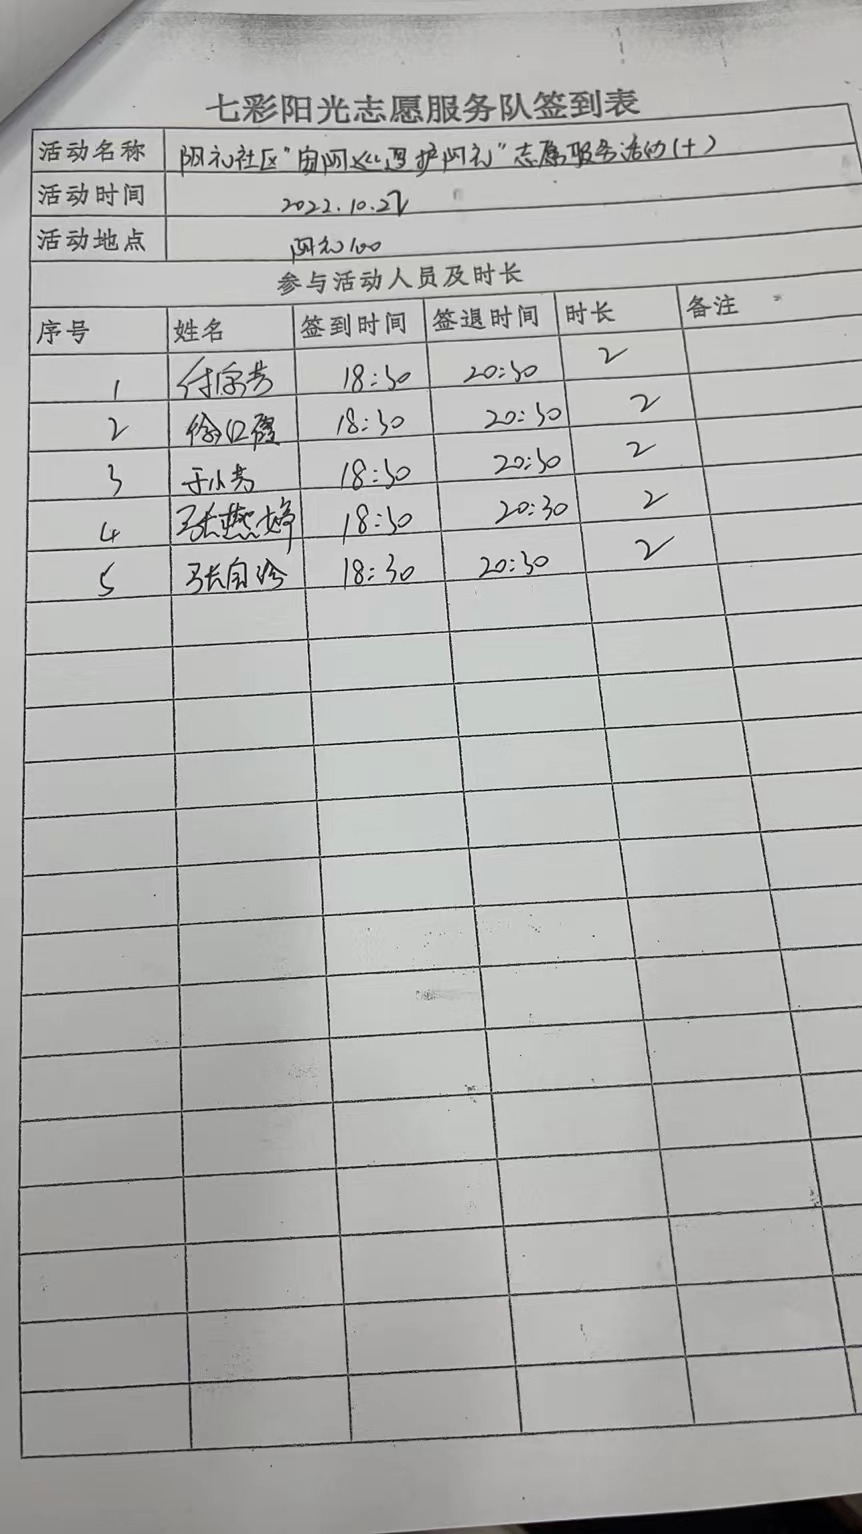 七彩阳光志愿服务队签到表
活动名称 社区" 护 "志愿服务活动(十)
活动时间 2022.10.22
活动地点 100
参与活动人员及时长
序号 姓名 签到时间 签退时间 时长 备注
1 18:30 20:30 2
2 18:30 20:30 2
3 于小芳 18:30 20:30 2
4 张燕婷 18:30 20:30 2
5 18:30 20:30 2